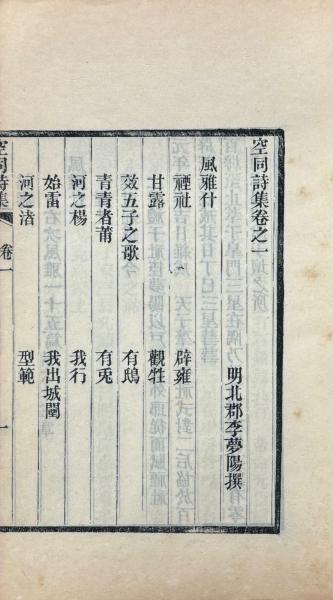 空同詩集卷之一
明北郡李夢陽撰
風雅什
禋社 辟雍
甘露 觀牲
效五子之歌 有鴟
青青者莆 有兎
河之楊 我行
始雷 我出城闉
河之渚 型範
空同詩集 卷一 一